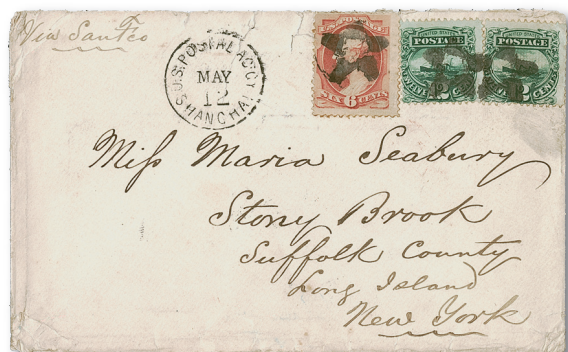 Via San Fco
U.S. POSTAL AG'CY
MAY
12
SHANGHAI
POSTAGE
SIX 6 CENTS
UNITED STATES
POSTAGE
TWELVE 12 CENTS
UNITED STATES
POSTAGE
12 CENTS
Miss Maria Seabury
Stony Brook
Suffolk County
Long Island
New York